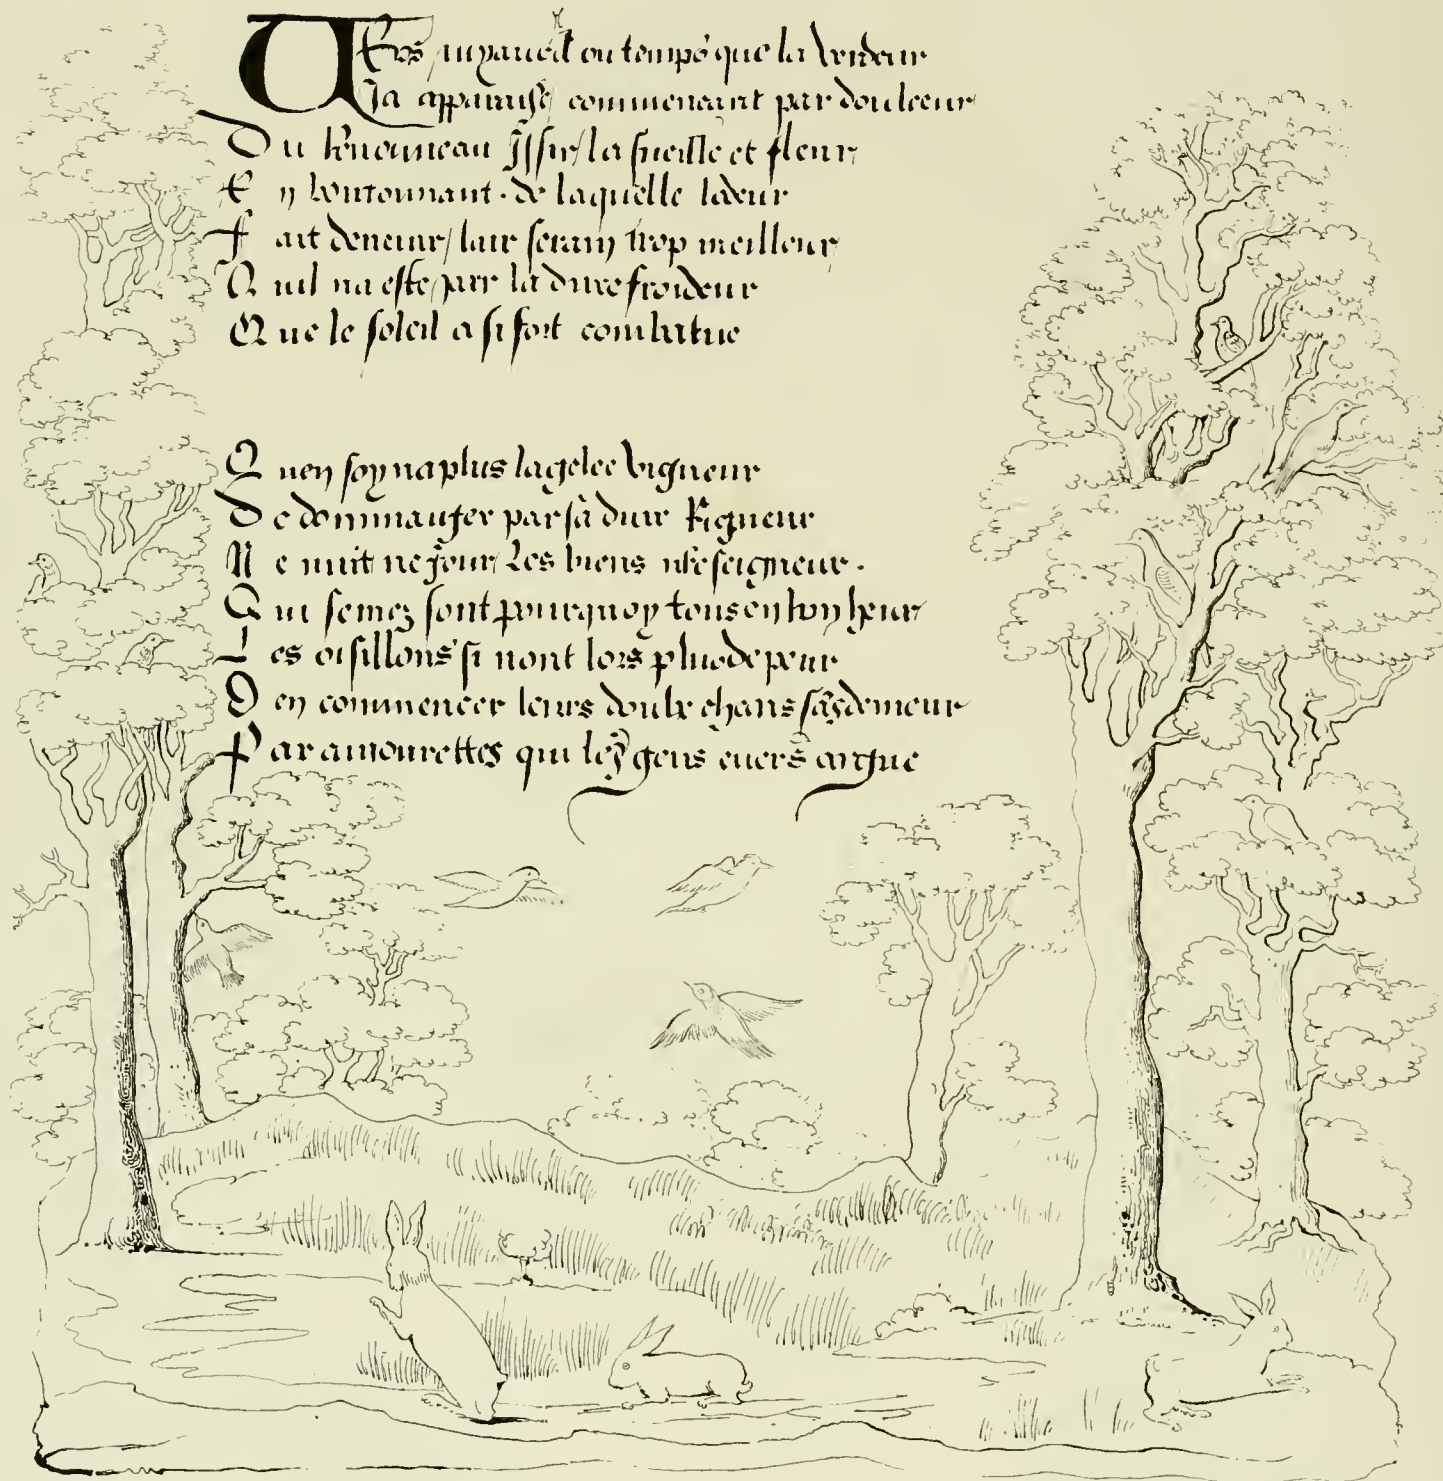 Vers my avril ou temps que la verdeur
Ja apparaist, commencant par doulceur
Du renouveau Issir/ la fueille et fleur,
En boutonnant. de laquelle lodeur
Fait devenir/ lair serain trop meilleur,
Quil na este, par la dure froideur
Que le soleil a si fort combatue
Quen soy na plus la gelee vigueur
De dommauger par sa dure Rigueur
Ne nuit ne jour/ Les biens nre seigneur.
Qui semez sont pourquoy tous en bon heur
Les oisillons si nont lors plus de peur
Den commencer leurs doulx chans sās demeur
Par amourettes qui les gens argue